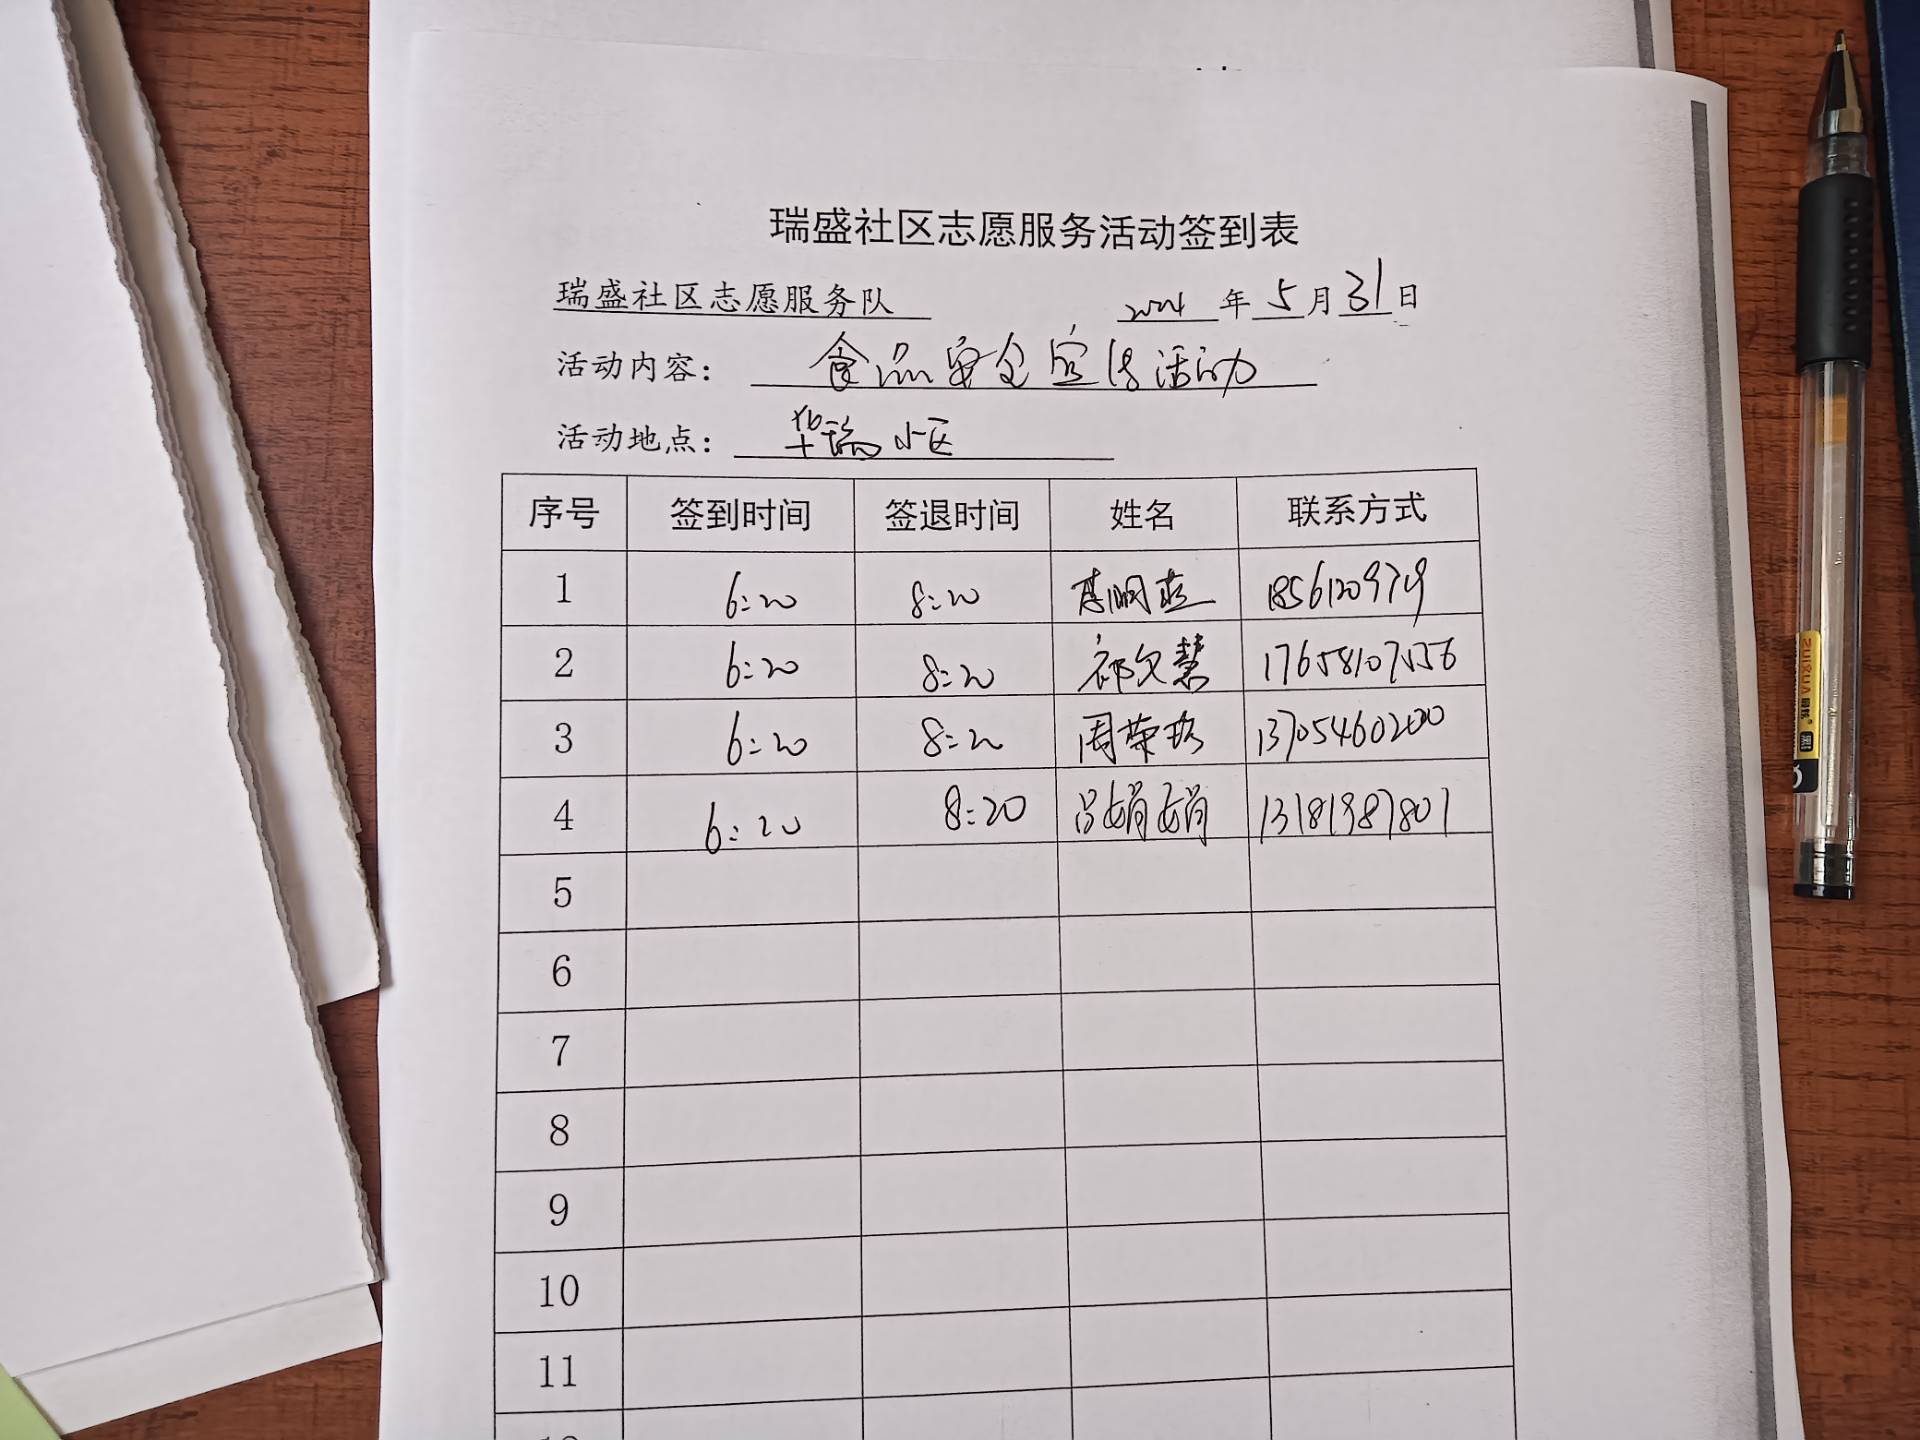 瑞盛社区志愿服务活动签到表
瑞盛社区志愿服务队 2024 年 5 月 31 日
活动内容： 食品安全宣传活动
活动地点： 华瑞小区
序号 签到时间 签退时间 姓名 联系方式
1 6:20 8:20
2 6:20 8:20 祁文慧 17658107556
3 6:20 8:20 13705460200
4 6:20 8:20 吕娟娟 13181987801
5
6
7
8
9
10
11